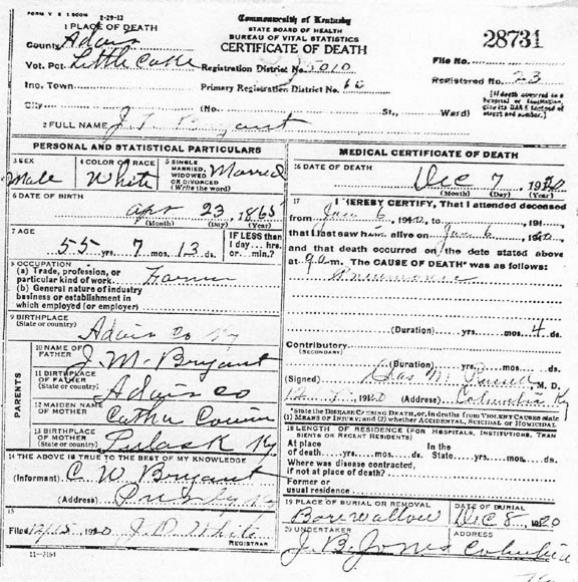 FORM V. S. 1 500M 1-29-12
Commonwealth of Kentucky
STATE BOARD OF HEALTH
BUREAU OF VITAL STATISTICS
CERTIFICATE OF DEATH
28731
1 PLACE OF DEATH
County Adair
Vot. Pct. Little Cake
Registration District No. 5010
File No.
Inc. Town
Primary Registration District No. 66
Registered No. 23
City (No. St., Ward)
(If death occurred in a hospital or institution, give its NAME instead of street and number.)
2 FULL NAME J. T. Bryant
PERSONAL AND STATISTICAL PARTICULARS
3 SEX Male
4 COLOR OR RACE White
5 SINGLE, MARRIED, WIDOWED OR DIVORCED (Write the word) Married
6 DATE OF BIRTH
Apr 23, 1865
(Month) (Day) (Year)
7 AGE
55 yrs. 7 mos. 13 ds.
IF LESS than 1 day... hrs. or... min.?
8 OCCUPATION
(a) Trade, profession, or particular kind of work Farmer
(b) General nature of industry business or establishment in which employed (or employer)
9 BIRTHPLACE
(State or country) Adair Co Ky
PARENTS
10 NAME OF FATHER J. M. Bryant
11 BIRTHPLACE OF FATHER (State or country) Adair Co
12 MAIDEN NAME OF MOTHER
13 BIRTHPLACE OF MOTHER (State or country) Pulask Ky.
14 THE ABOVE IS TRUE TO THE BEST OF MY KNOWLEDGE
(Informant) C. W. Bryant
(Address)
15
Filed 12/15 1920 J. D. White
REGISTRAR
11-3184
MEDICAL CERTIFICATE OF DEATH
16 DATE OF DEATH
Dec 7, 1920
(Month) (Day) (Year)
17 I HEREBY CERTIFY, That I attended deceased
from Jan 6, 1920, to 191
that I last saw him alive on Jan 6, 1920,
and that death occurred on the date stated above
at 9 a.m. The CAUSE OF DEATH* was as follows:
Pneumonia
(Duration) yrs. mos. 4 ds.
Contributory
(SECONDARY)
(Duration) yrs. mos. ds.
(Signed) M. D.
1920 (Address) Columbia Ky
*State the DISEASE CAUSING DEATH, or, in deaths from VIOLENT CAUSES state (1) MEANS OF INJURY; and (2) whether ACCIDENTAL, SUICIDAL or HOMICIDAL
18 LENGTH OF RESIDENCE (FOR HOSPITALS, INSTITUTIONS, TRANSIENTS OR RECENT RESIDENTS)
At place of death yrs. mos. ds. In the State yrs. mos. ds.
Where was disease contracted, if not at place of death?
Former or usual residence
19 PLACE OF BURIAL OR REMOVAL Bearwallow
DATE OF BURIAL Dec 8, 1920
20 UNDERTAKER J. B. Jones
ADDRESS Columbia
Ky